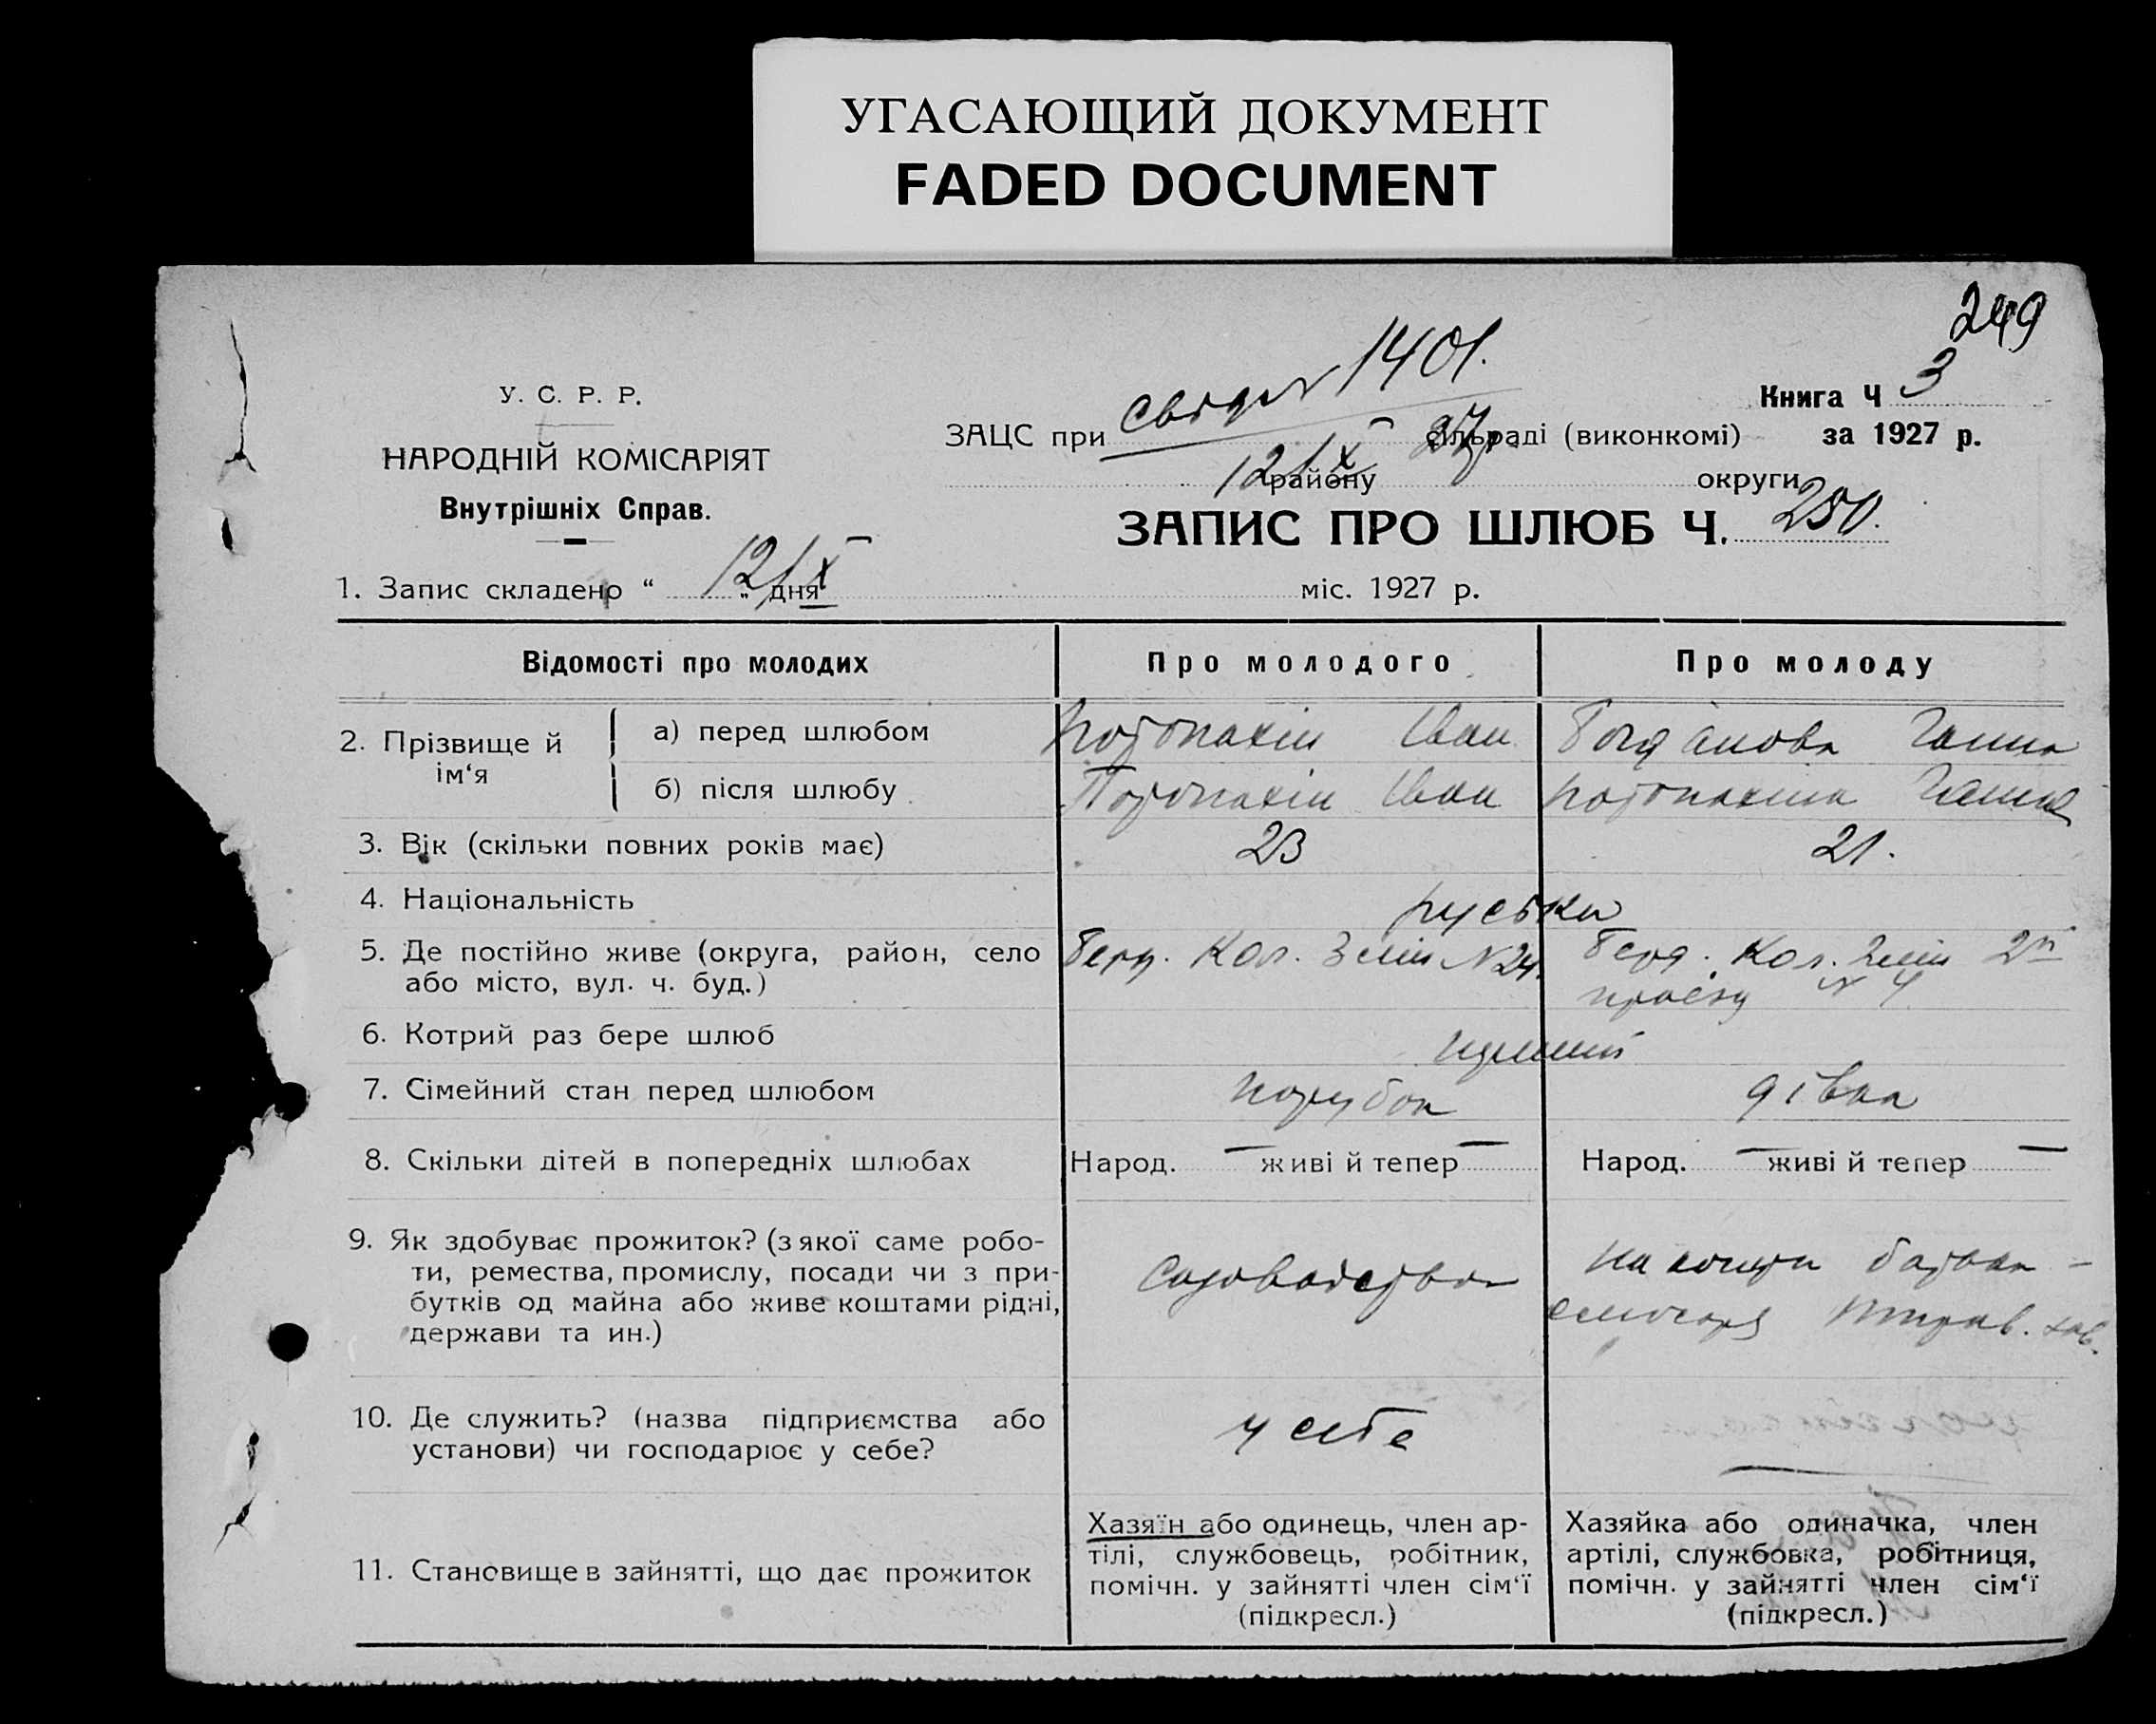 УГАСАЮЩИЙ ДОКУМЕНТ
FADED DOCUMENT
249
У. С. Р. Р.
НАРОДНІЙ КОМІСАРІЯТ
Внутрішніх Справ.
Свідч 1401.
12/X 27
ЗАЦС при сільраді (виконкомі)
району округи
Книга Ч 3
за 1927 р.
ЗАПИС ПРО ШЛЮБ Ч. 250.
1. Запис складено “ 12/X „ дня міс. 1927 р.
Відомості про молодих Про молодого Про молоду
2. Прізвище й ім‘я
а) перед шлюбом Потопахін Іван Богданова Ганна
б) після шлюбу Потопахін Іван Потопахина Ганна
3. Вік (скільки повних років має) 23 21.
4. Національність руськи
5. Де постійно живе (округа, район, село Берд. Кол. 3 лін N24. Берд. Кол. лін 2й
або місто, вул. ч. буд.) проезд N 4
6. Котрий раз бере шлюб перший
7. Сімейний стан перед шлюбом парубок дівка
8. Скільки дітей в попередніх шлюбах Народ. — живі й тепер — Народ. — живі й тепер —
9. Як здобуває прожиток? (з якої саме робо-
ти, ремества, промислу, посади чи з при-
бутків од майна або живе коштами рідні,
держави та ин.)
Садоводство
на кошти батька -
10. Де служить? (назва підприємства або
установи) чи господарює у себе?
у себе —
11. Становище в зайнятті, що дає прожиток
Хазяїн або одинець, член ар-
тілі, службовець, робітник,
помічн. у зайнятті член сім‘ї
(підкресл.)
Хазяйка або одиначка, член
артілі, службовка, робітниця,
помічн. у зайнятті член сім‘ї
(підкресл.)